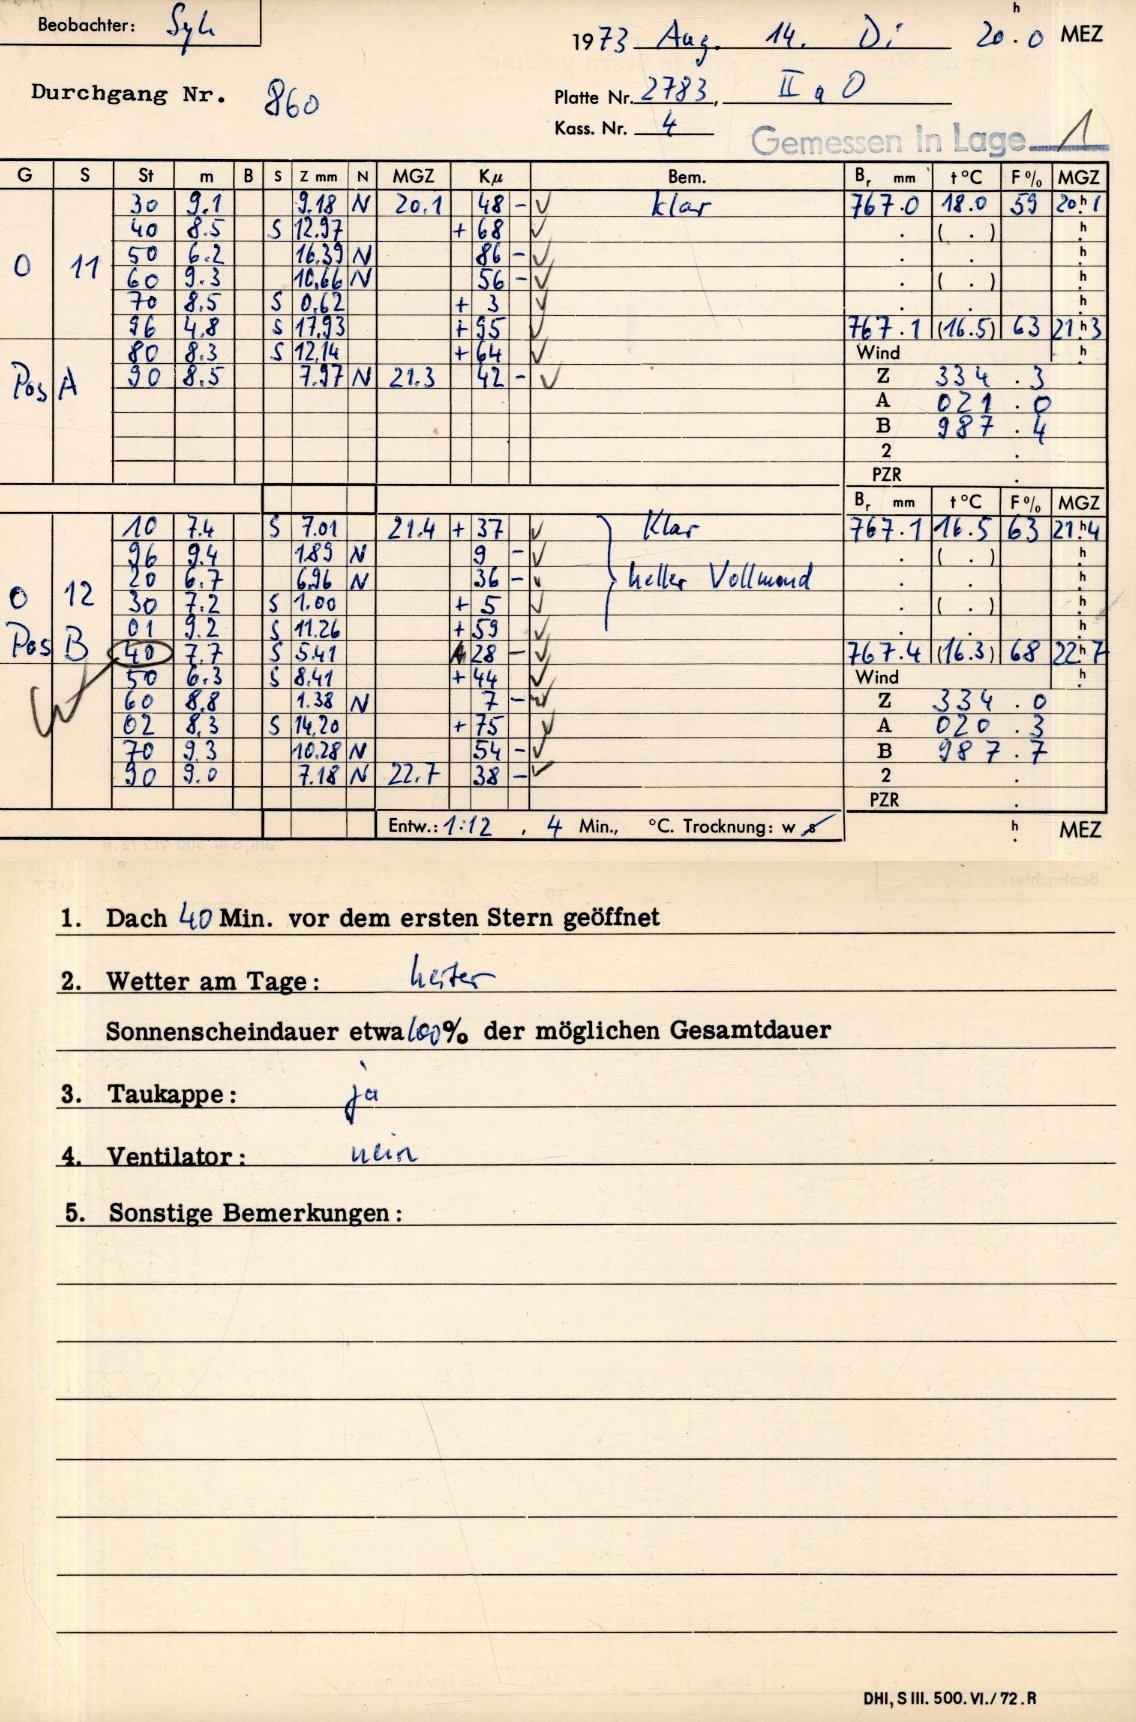 Beobachter: Syh
1973 Aug. 14. Di 20.h0 MEZ
Durchgang Nr. 860
Platte Nr. 2783, II a O
Kass. Nr. 4
Gemessen in Lage 1
G S St m B S Z mm N MGZ Kμ Bem. Br mm t °C F % MGZ
30 9.1 9.18 N 20.1 48 - klar 767.0 18.0 59 20h1
40 8.5 S 12.97 + 68 . ( . ) h
O 11 50 6.2 16.39 N 86 - . . h
60 9.3 10.66 N 56 - . ( . ) h
70 8.5 S 0.62 + 3 . . h
96 4.8 S 17.93 + 95 767.1 (16.5) 63 21h3
80 8.3 S 12.14 + 64 Wind h
Pos A 90 8.5 7.97 N 21.3 42 - Z 334.3
A 021.0
B 987.4
2 .
PZR
Br mm t °C F % MGZ
10 7.4 S 7.01 21.4 + 37 Klar 767.1 16.5 63 21h4
96 9.4 1.89 N 9 - . ( . ) h
20 6.7 6.96 N 36 - heller Vollmond . . h
O 12 30 7.2 S 1.00 + 5 . ( . ) h
01 9.2 S 11.26 + 59 . . h
Pos B 40 7.7 S 5.41 28 - 767.4 (16.3) 68 22h7
50 6.3 S 8.41 + 44 Wind h
60 8.8 1.38 N 7 - Z 334.0
02 8.3 S 14.20 + 75 A 020.3
70 9.3 10.28 N 54 - B 987.7
90 9.0 7.18 N 22.7 38 - 2 .
PZR .
Entw.: 1:12 , 4 Min., °C. Trocknung: w s h. MEZ
1. Dach 40 Min. vor dem ersten Stern geöffnet
2. Wetter am Tage: heiter
Sonnenscheindauer etwa 100% der möglichen Gesamtdauer
3. Taukappe: ja
4. Ventilator: nein
5. Sonstige Bemerkungen:
DHI, S III. 500. VI./ 72. R